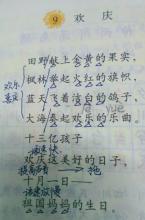 9 欢庆
田野献上金黄的果实,
枫林举起火红的旗帜,
蓝天飞着洁白的鸽子,
欢乐
大海奏起欢乐的乐曲。
十三亿孩子
欢庆这美好的日子,
提高声音 拖
十月一日——
读缓慢
祖国妈妈的生日。